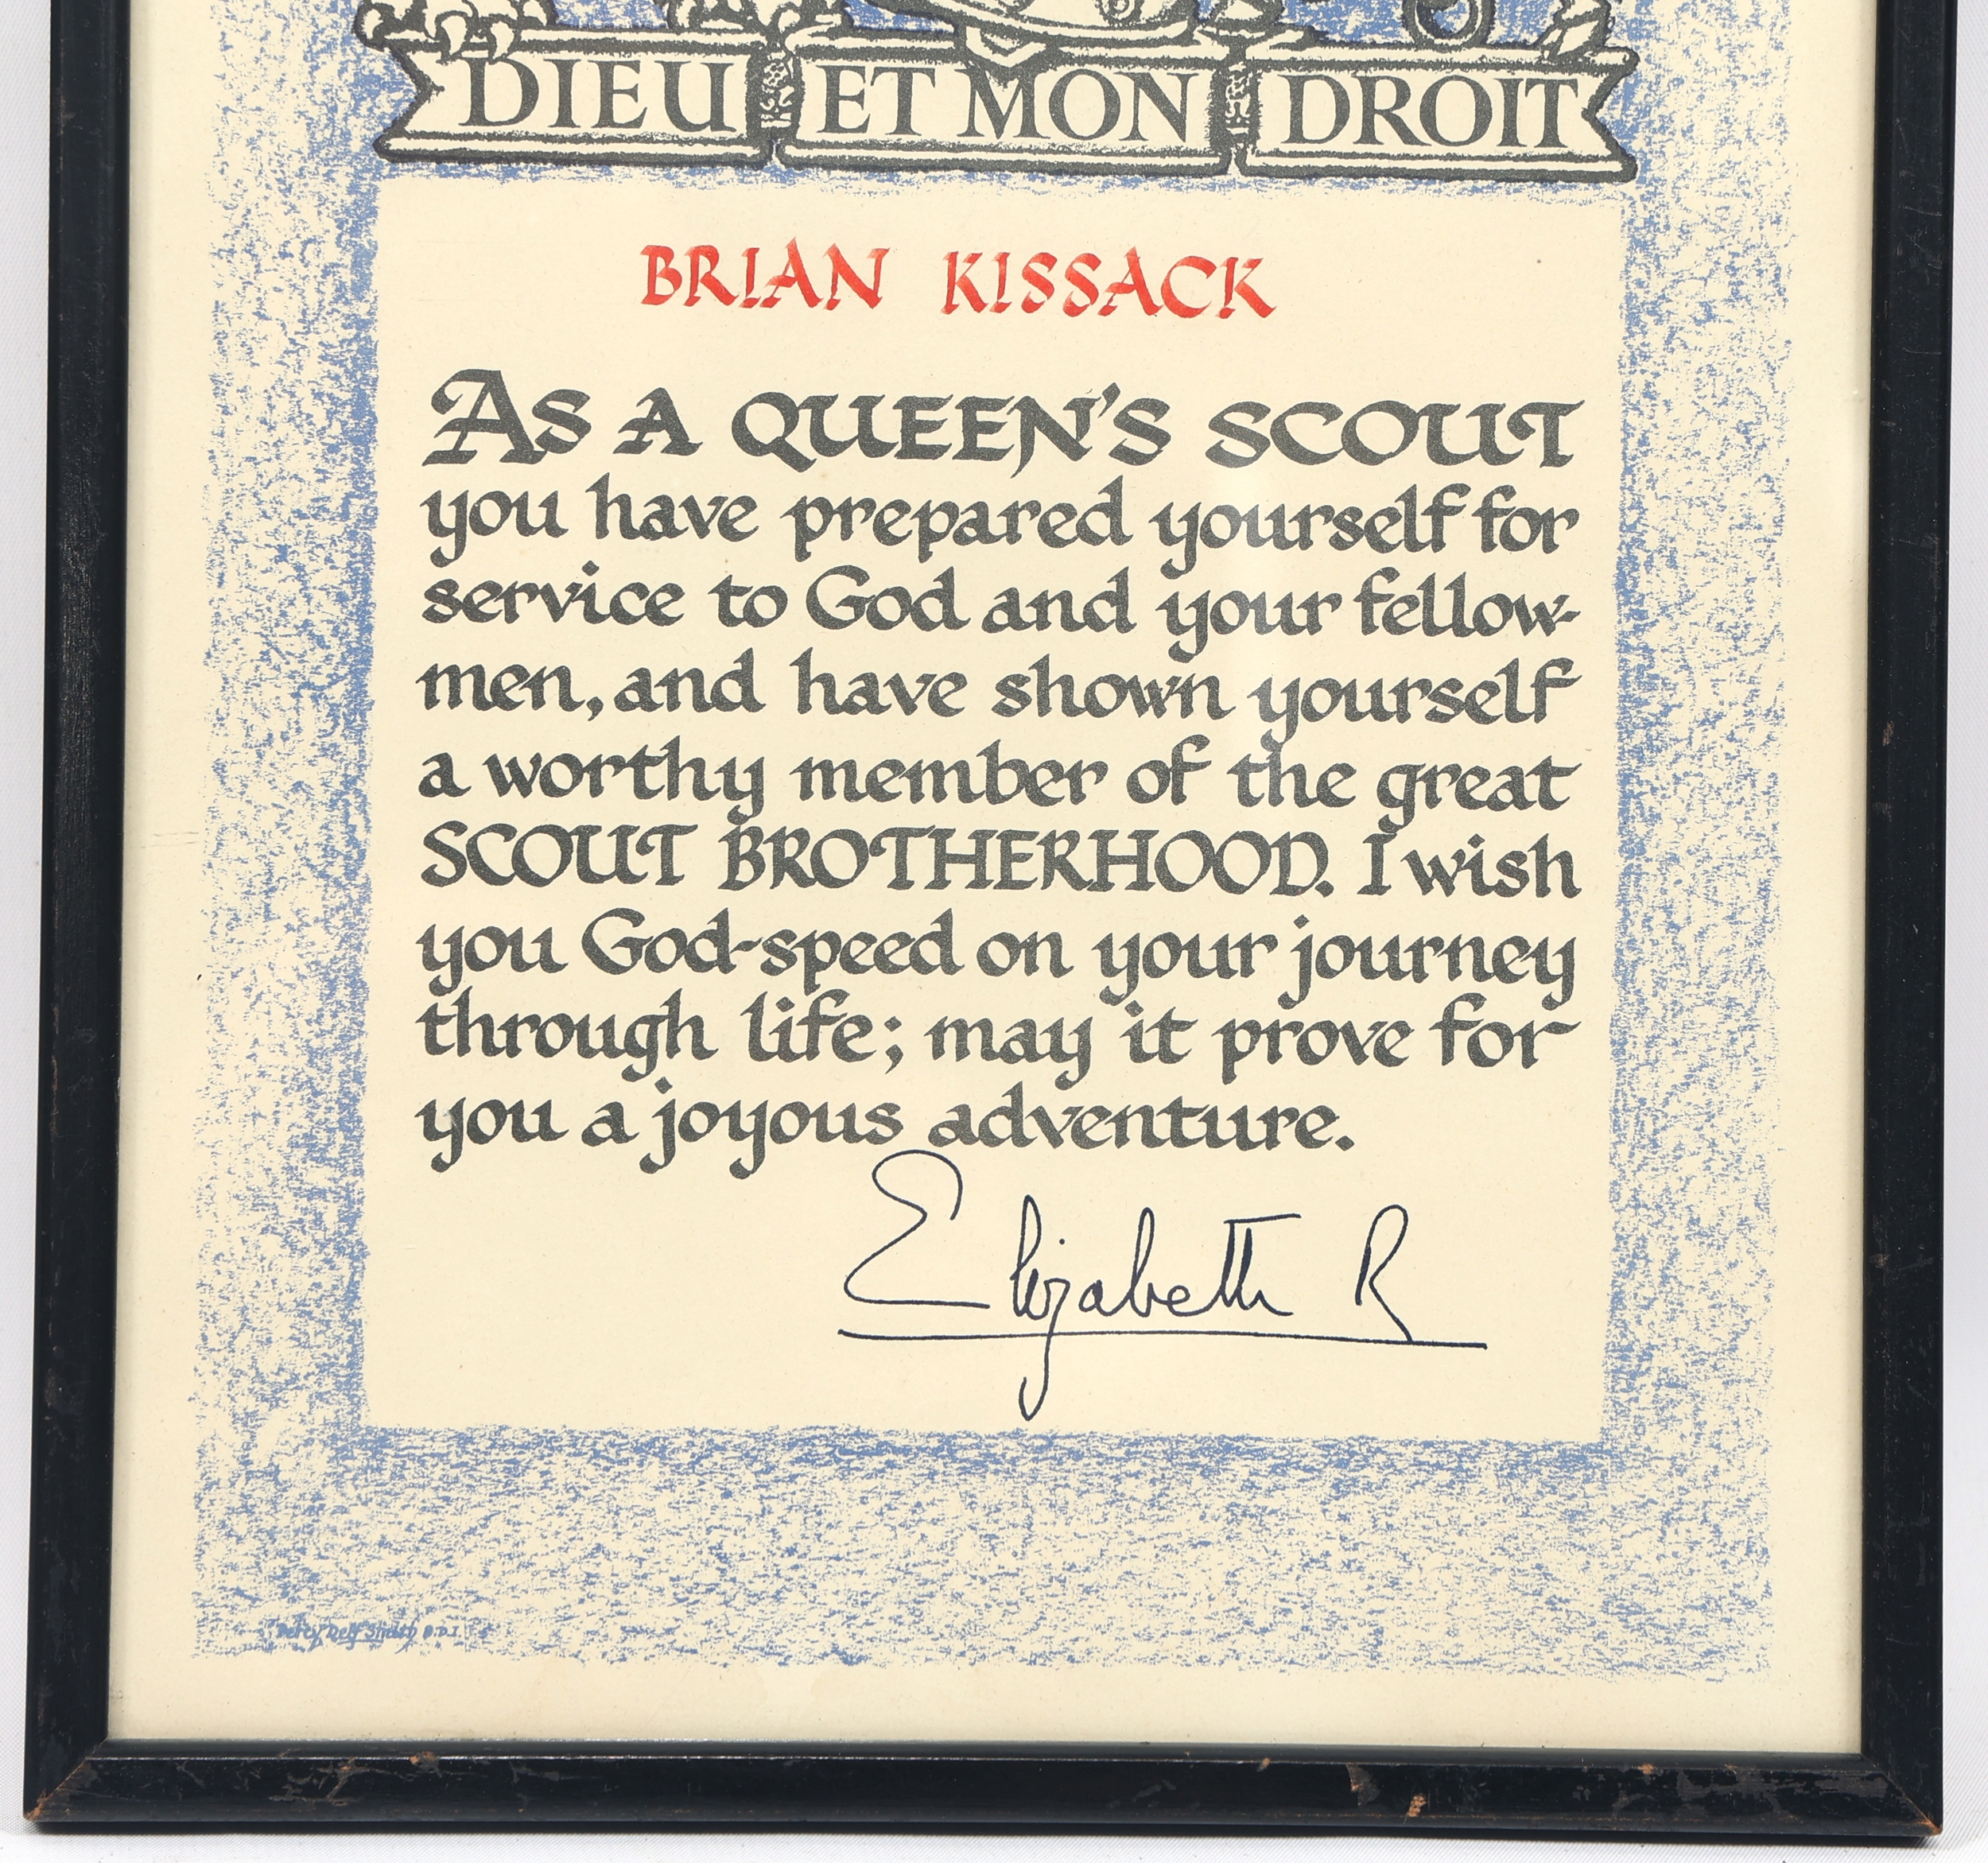 DIEU ET MON DROIT
BRIAN KISSACK
AS A QUEEN'S SCOUT
you have prepared yourself for
service to God and your fellow-
men, and have shown yourself
a worthy member of the great
SCOUT BROTHERHOOD. I wish
you God-speed on your journey
through life; may it prove for
you a joyous adventure.
Elizabeth R
Percy Delf Smith R.D.I